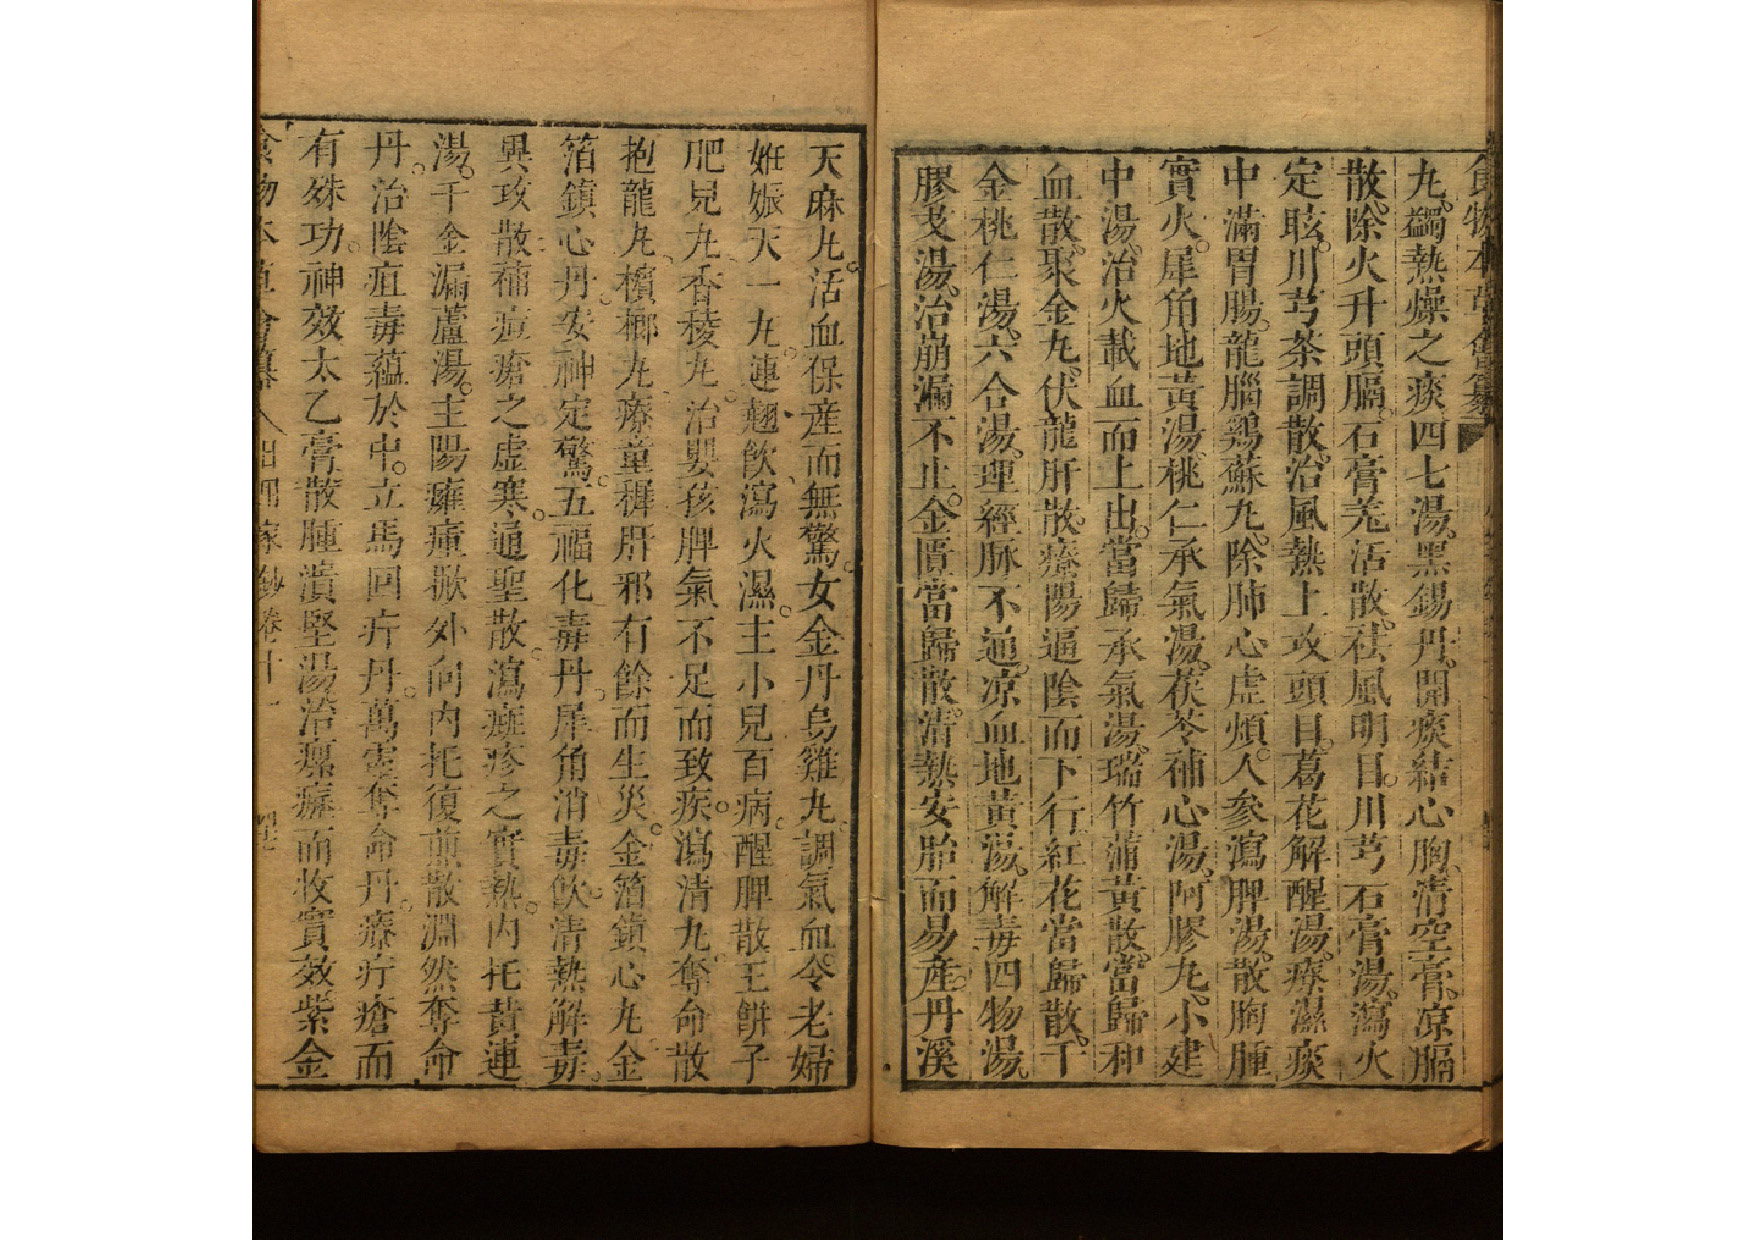 食物本草會纂
丸。蠲熱燥之痰四七湯。黑錫丹。開痰結心胸。清空膏。凉膈
散。除火升頭膈。石膏羗活散。祛風明目。川芎石膏湯。瀉火
定眩。川芎茶調散。治風熱上攻頭目。葛花解酲湯。療濕痰
中滿胃腸。龍腦鷄蘇丸。除肺心虛煩。人參瀉脾湯。散胸腫
實火。犀角地黃湯。桃仁承氣湯。茯苓補心湯。阿膠丸。小建
中湯。治火載血而上出。當歸承氣湯。瑞竹蒲黃散。當歸和
血散。聚金丸。伏龍肝散。療陽逼陰而下行。紅花當歸散。千
金桃仁湯。六合湯。理經脉不通。凉血地黃湯。解毒四物湯。
膠艾湯。治崩漏不止。金匱當歸散。清熱安胎而易產。丹溪
天麻丸。活血保產而無驚。女金丹烏雞丸。調氣血。令老婦
姙娠天一丸。連翹飲瀉火濕。主小兒百病。醒脾散王餅子
肥兒丸。香稜丸。治嬰孩脾氣不足而致疾。瀉清丸。奪命散
抱龍丸。檳榔丸。療童穉肝邪有餘而生災。金箔鎮心丸。金
箔鎮心丹。安神定驚。五福化毒丹。犀角消毒飲。清熱解毒。
異攻散。補痘瘡之虛寒。通聖散。瀉癍疹之實熱。内托黃連
湯。千金漏蘆湯。主陽癰痛掀外向内托復煎散淵然奪命
丹。治陰疽毒蘊於中。立馬回疔丹。萬靈奪命丹。療疔瘡而
有殊功。神效太乙膏散腫潰堅湯治瘰癧而收實效紫金
食物本草會纂八 日用家鈔卷十一